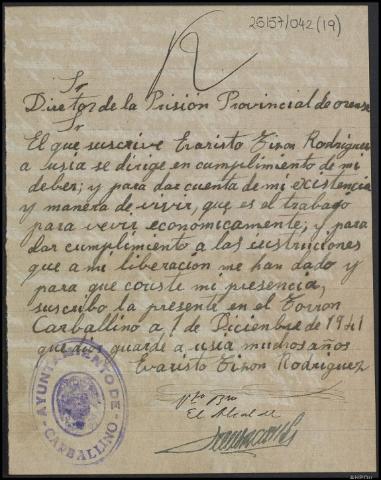 26157/042(19)
Sr
Diretor de la Prisión Provincial de orense
Sr
El que suscrive Evaristo Tizon Rodriguez
a usia se dirige en cumplimiento de mi
deber; y para dar cuenta de mi existencia
y manera de vivir, que es el trabajo
para vevir economicamente; y para
dar cumplimiento a las instruciones
que a mi liberacion me han dado y
para que conste mi presencia,
suscribo la presente en el Torron
Carballino a 1 de Diciembre de 1941
que dios guarde a usia muchos años
Evaristo Tizon Rodriguez
Vto Bno
El Alcalde
AYUNTAMIENTO DE
CARBALLINO